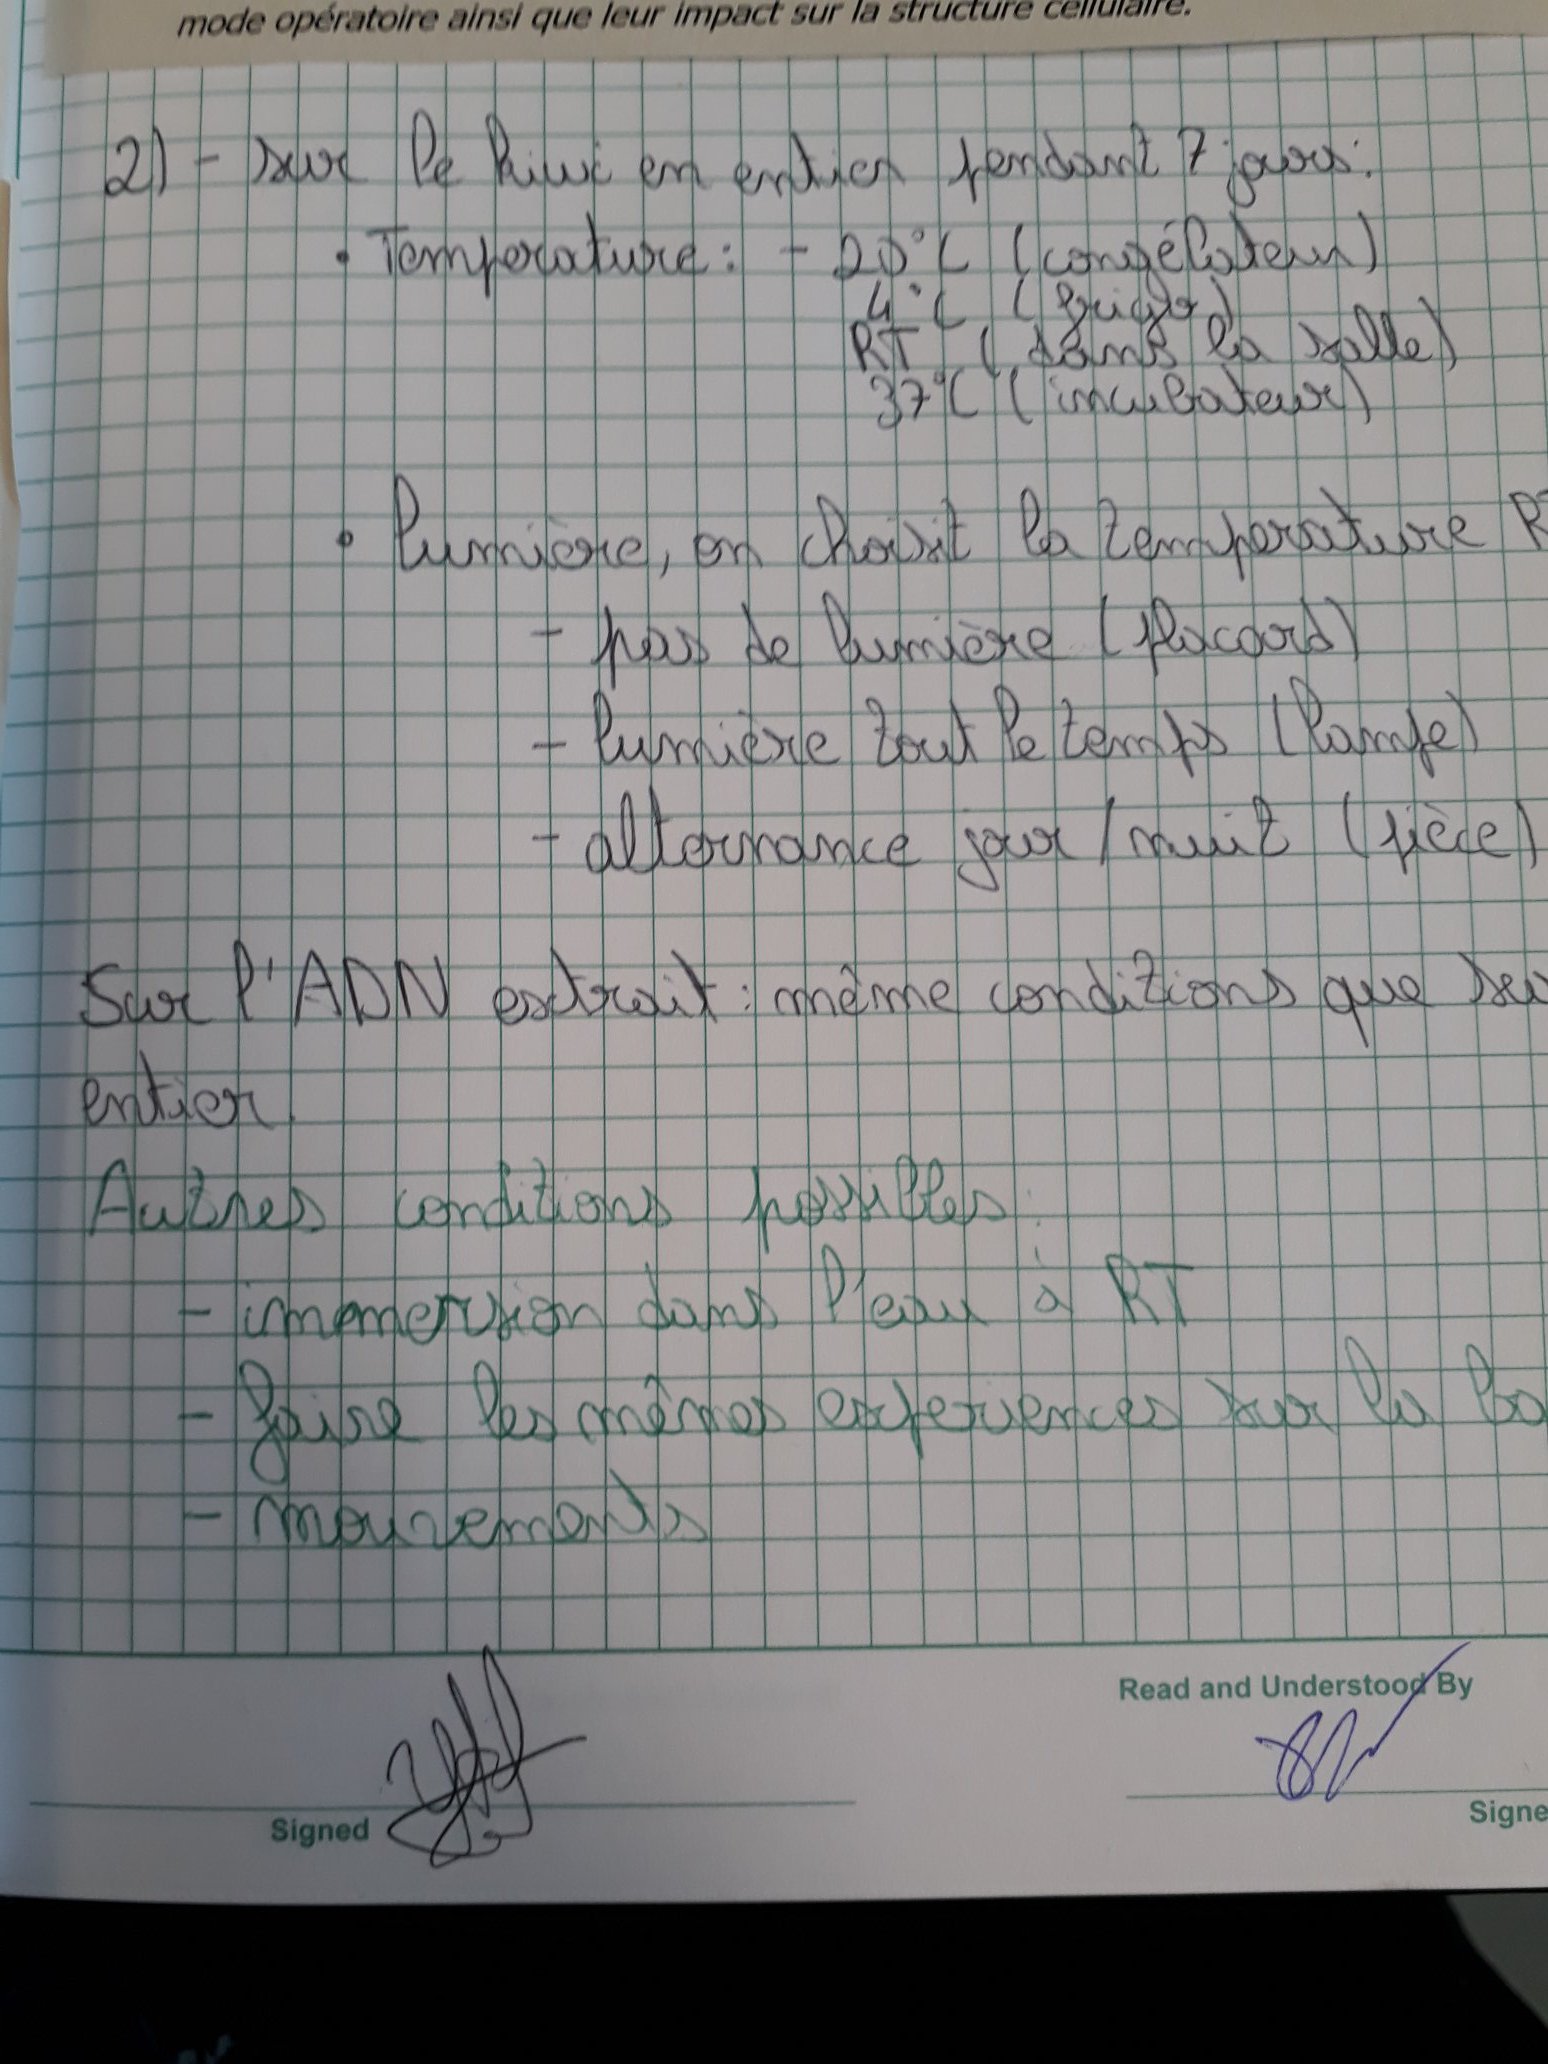 mode opératoire ainsi que leur impact sur la structure cellulaire.
2) - sur le kiwi en entier pendant 7 jours:
• Température: - 20°C (congélateur)
4°C (frigo)
RT (dans la salle)
37°C (incubateur)
• lumière, on choisit la température
- pas de lumière (placard)
- lumière tout le temps (lampe)
- alternance jour/nuit (pièce)
Sur l'ADN extrait: même conditions que
entier.
Autres conditions possibles:
- immersion dans l'eau à RT
- faire les mêmes experiences sur la
- mouvements
Read and Understood By
Signed
Signe